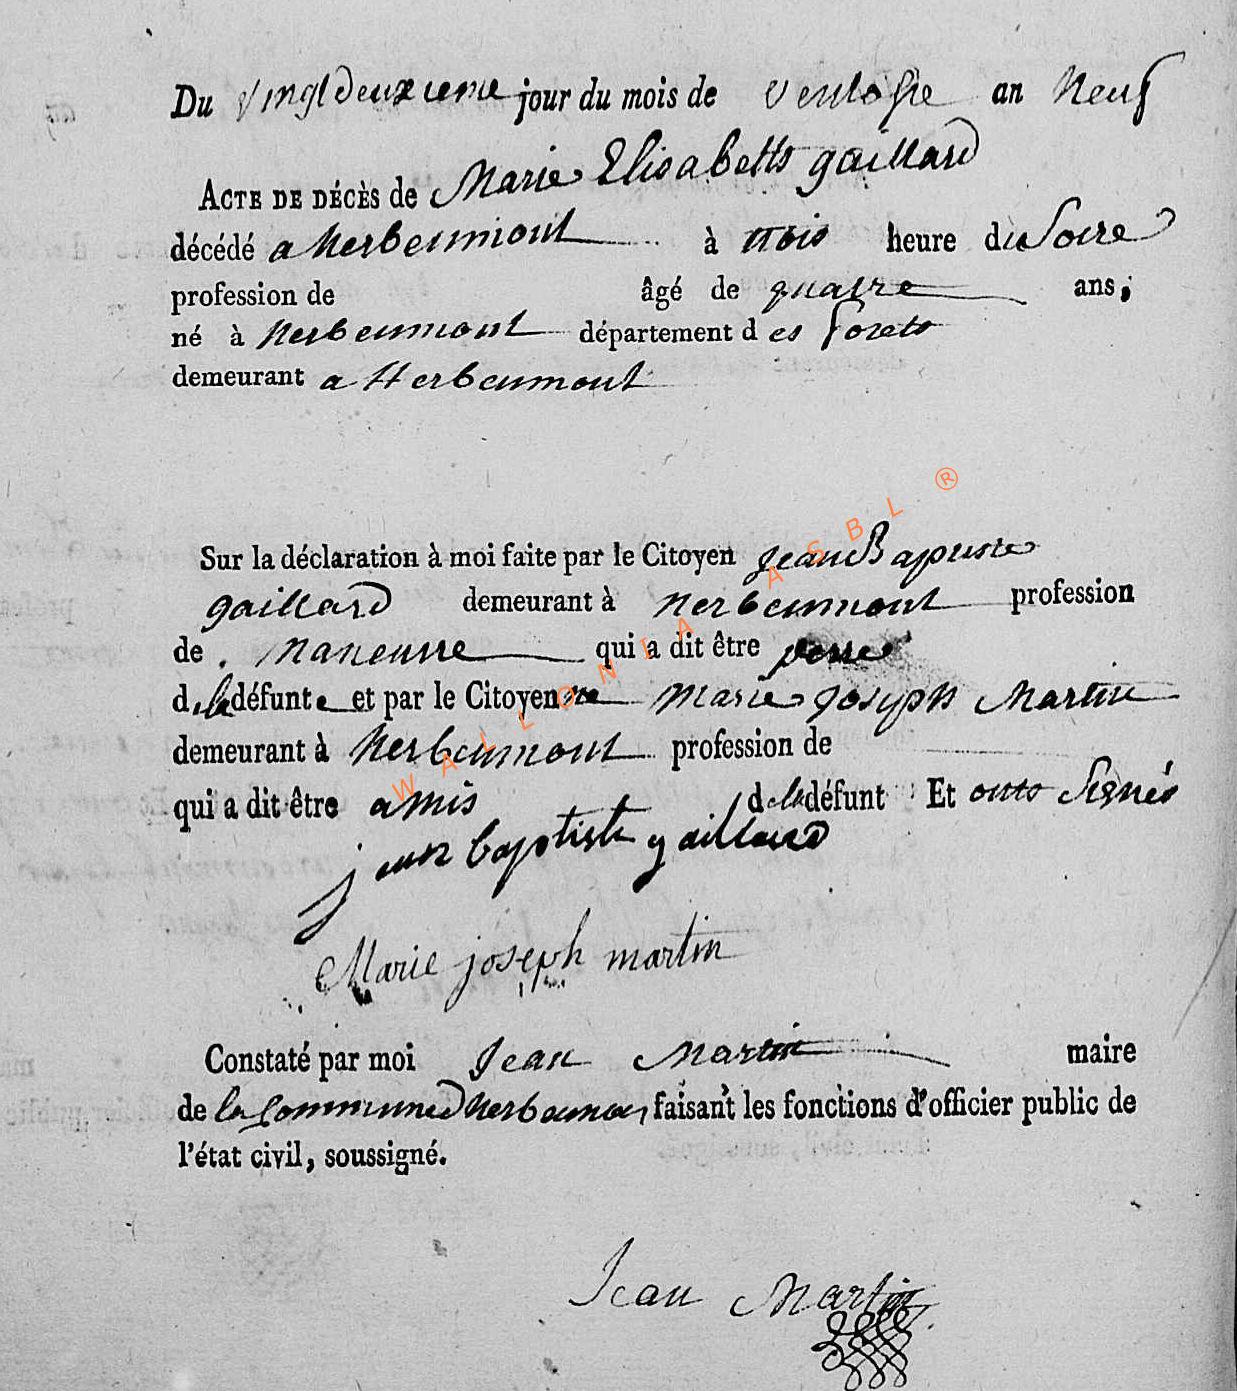 Du vingt deuxieme jour du mois de ventose an neuf
ACTE DE DÉCÈS de Marie Elisabette gaillard
décédé a herbeumont à trois heure du Soire
profession de âgé de quatre ans;
né à herbeumont département d es forets
demeurant a Herbeumont
Sur la déclaration à moi faite par le Citoyen Jean Baptiste
gaillard demeurant à herbeumont profession
de maneuvre qui a dit être perre
d. la défunt e et par le Citoyen ne Marie joseph Martin
demeurant à herbeumont profession de
qui a dit être amis d la défunt Et onts Signés
jean baptiste gaillard
Marie joseph martin
Constaté par moi Jean Martin maire
de la Commune d herbeumon faisant les fonctions d'officier public de
l'état civil, soussigné.
Jean Martin
WALLONIA ASBL ®